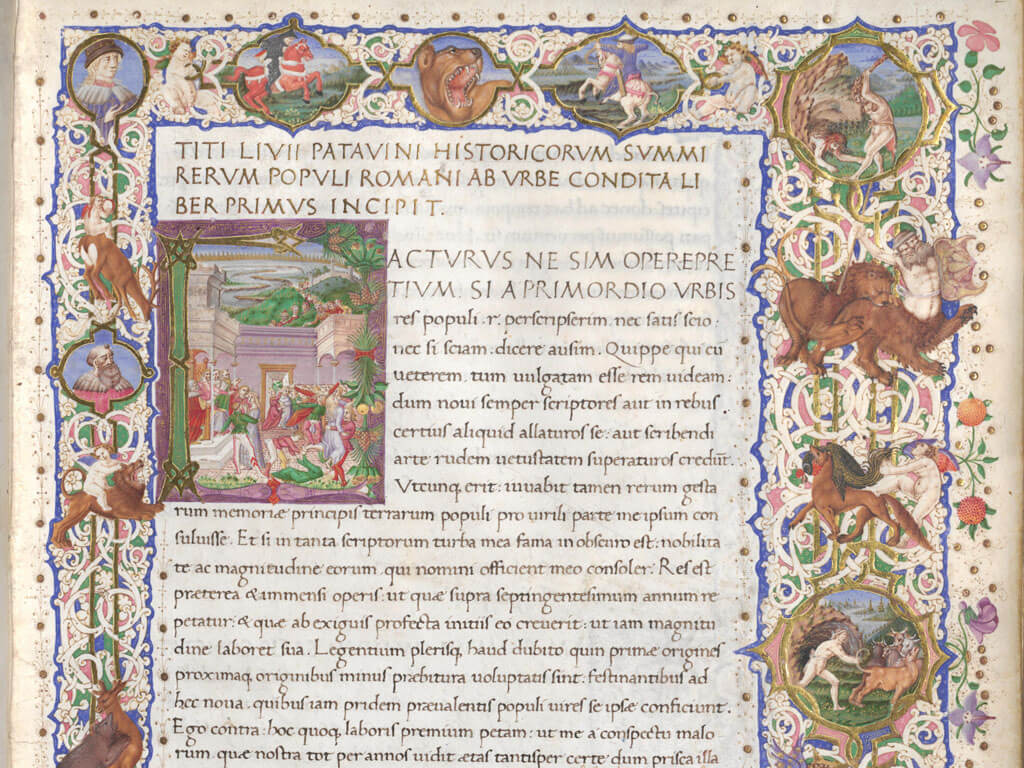 TITI LIVII PATAVINI HISTORICORVM SVMMI
RERVM POPVLI ROMANI AB VRBE CONDITA LI
BER PRIMVS INCIPIT.
FACTURVS NE SIM OPEREPRE
TIVM. SI A PRIMORDIO VRBIS
res populi .r. perscripserim nec satis scio:
nec si sciam: dicere ausim. Quippe qui cū
ueterem: tum uulgatam esse rem uideam:
dum noui semper scriptores aut in rebus
certius aliquid allaturos se: aut scribendi
arte rudem uetustatem superaturos credūt.
Vtcunq; erit: iuuabit tamen rerum gesta
rum memoriæ principis terrarum populi pro uirili parte me ipsum con
suluisse. Et si in tanta scriptorum turba mea fama in obscuro est: nobilita
te ac magnitudine eorum, qui nomini officient meo consoler. Res est
præterea & immensi operis: ut quæ supra septingentesimum annum re
petatur: & quæ ab exiguis profecta initiis eo creuerit: ut iam magnitu
dine laboret sua. Legentium plerisq; haud dubito quin primæ origines
proximaq; originibus minus præbitura uoluptatis sint: festinantibus ad
hec noua. quibus iam pridem præualentis populi uires se ipse conficiunt.
Ego contra: hoc quoq; laboris premium petam: ut me a conspectu malo
rum, quæ nostra tot per annos uidit ætas tantisper certe dum prisca illa